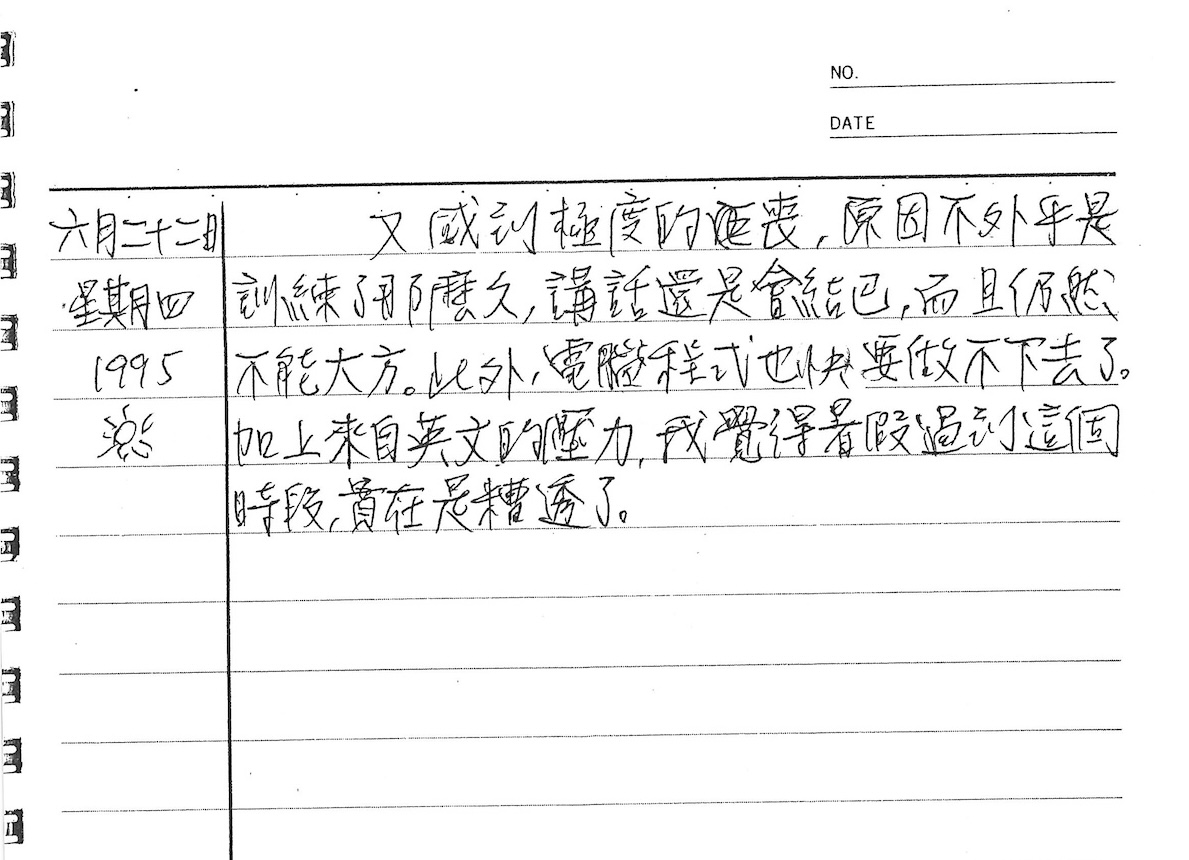 NO.
DATE
六月二十二日
星期四
1995
又感到極度的沮喪，原因不外乎是
訓練了那麼久，講話還是會結巴，而且仍然
不能大方。此外，電腦程式也快要做不下去了。
加上來自英文的壓力，我覺得暑假過到這個
時段，實在是糟透了。